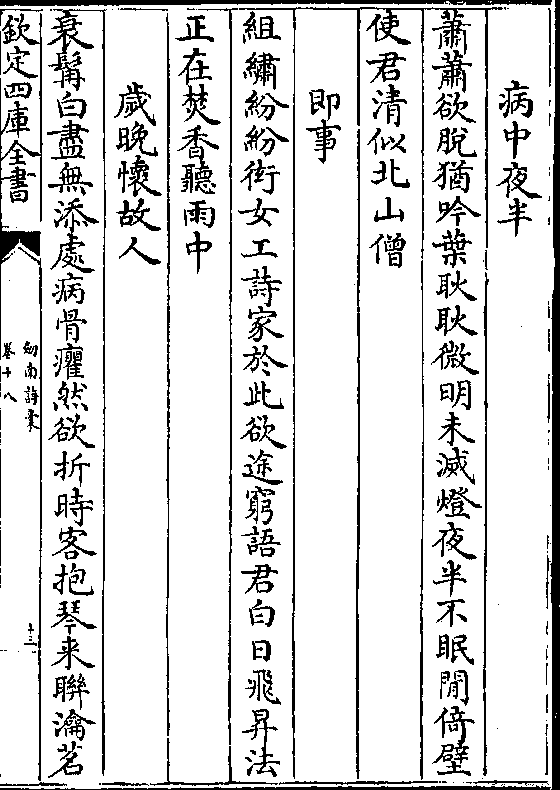 病中夜半
蕭蕭欲脫猶吟葉耿耿微明未滅燈夜半不眠閒倚壁
使君清似北山僧
即事
組繡紛紛衒女工詩家於此欲途窮語君白日飛昇法
正在焚香聽雨中
歲晚懷故人
衰髯白盡無添處病骨癯然欲折時客抱琴来聯瀹茗
欽定四庫全書
劍南詩稾
卷十八
十三